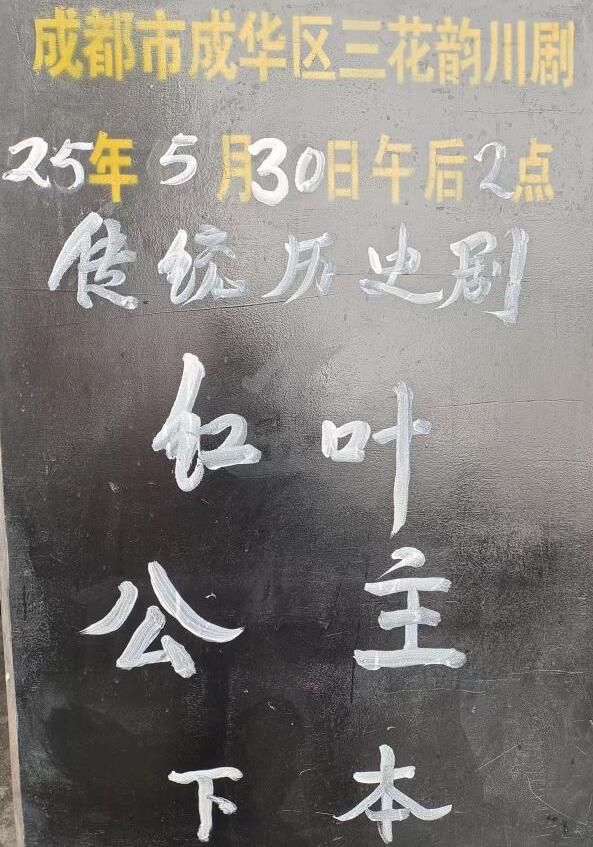 成都市成华区三花韵川剧
25年5月30日午后2点
传统历史剧
红叶
公主
下本